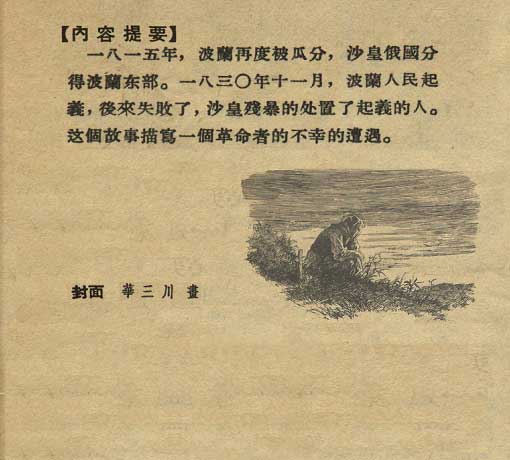 【內容提要】
一八一五年，波蘭再度被瓜分，沙皇俄國分
得波蘭东部。一八三〇年十一月，波蘭人民起
義，後來失敗了，沙皇殘暴的处置了起義的人。
这個故事描寫一個革命者的不幸的遭遇。
封面 華三川 畫